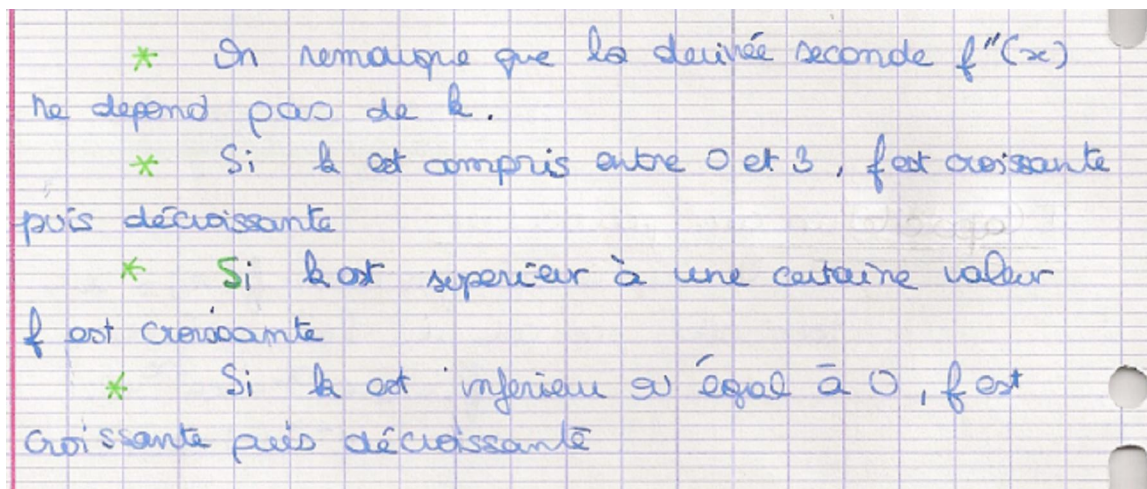 * On remarque que la derivée seconde f"(x)
ne depend pas de k.
* Si k est compris entre 0 et 3, f est croissante
puis décroissante
* Si k est superieur à une certaine valeur
f est croissante
* Si k est inferieur ou égal à 0, f est
croissante puis décroissante